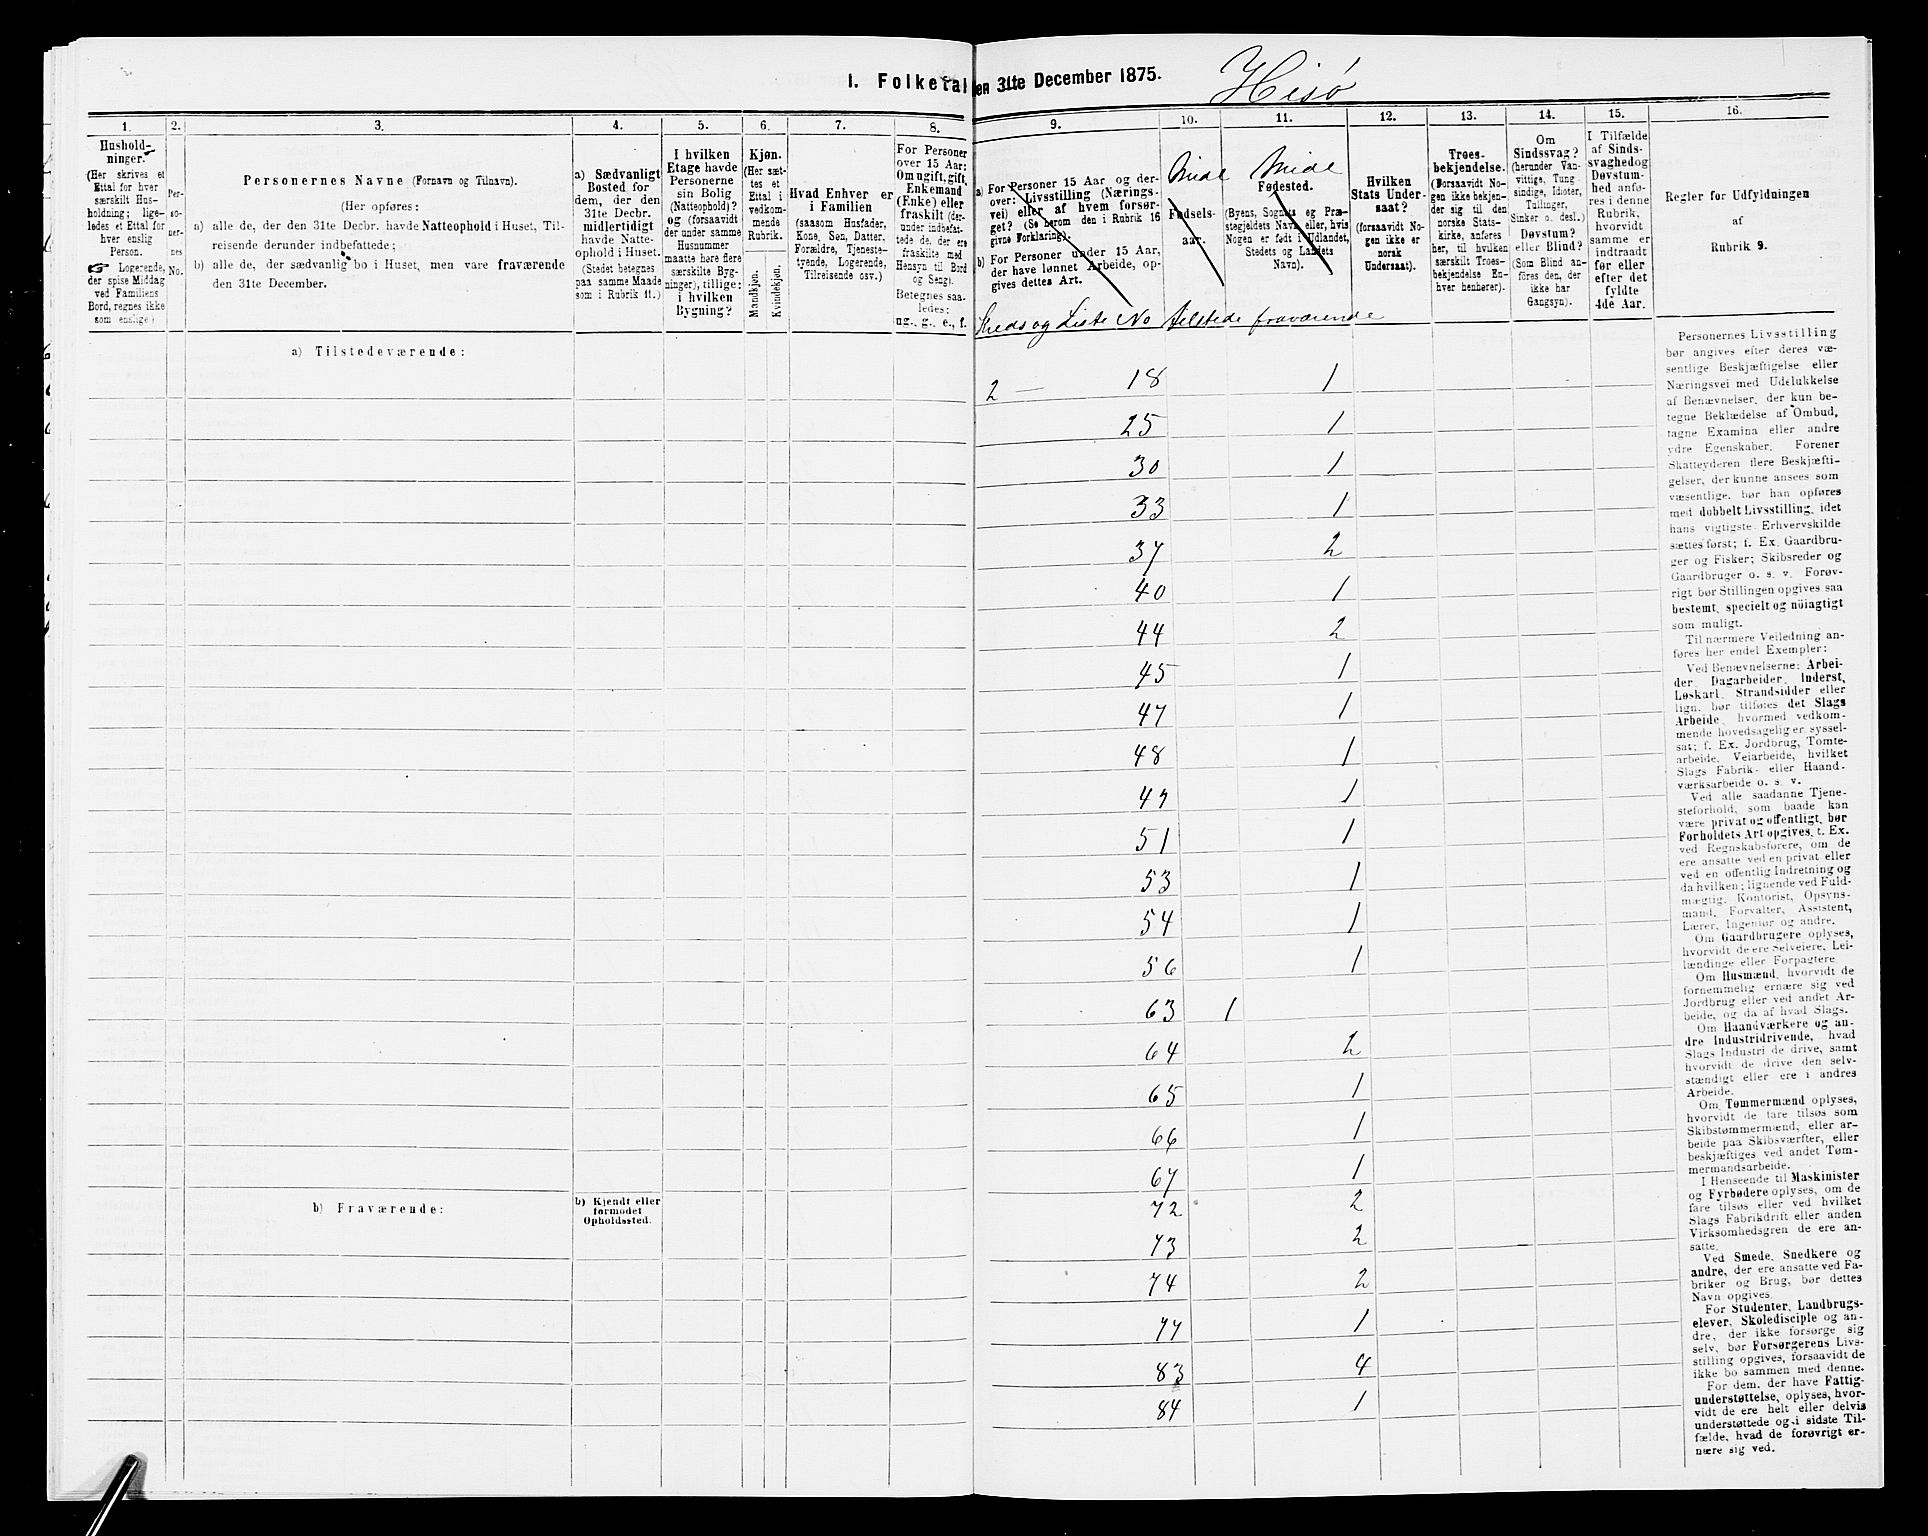 I. Folketal den 31te December 1875.
Hisø
1. 2. 3. 4. 5. 6. 7. 8. 9. 10. 11. 12. 13. 14. 15. 16.
Hushold-
ninger.
(Her skrives et
Ettal for hver
særskilt Hus-
holdning; lige-
ledes et Ettal for
hver enslig
Person.
☞ Logerende,
der spise Middag
ved Familiens
Bord, regnes ikke
som enslige.)
Per-
so-
ner-
nes
No.
Personernes Navne (Fornavn og Tilnavn).
(Her opføres:
a) alle de, der den 31te Decbr. havde Natteophold i Huset, Til-
reisende derunder indbefattede;
b) alle de, der sædvanlig bo i Huset, men vare fraværende
den 31te December.
a) Sædvanligt
Bosted for
dem, der den
31te Decbr.
midlertidigt
havde Natte-
ophold i Huset.
(Stedet betegnes
paa samme Maade
som i Rubrik 11.)
I hvilken
Etage havde
Personerne
sin Bolig
(Natteophold)?
og (forsaavidt
der under samme
Husnummer
maatte høre flere
særskilte Byg-
ninger), tillige:
i hvilken
Bygning?
Kjøn.
(Her sæt-
tes et
Ettal i
vedkom-
mende
Rubrik.
Mandkjøn.
Kvindekjøn.
Hvad Enhver er
i Familien
(saasom Husfader,
Kone, Søn, Datter,
Forældre, Tjeneste-
tyende, Logerende,
Tilreisende osv.)
For Personer
over 15 Aar:
Om ugift, gift,
Enkemand
(Enke) eller
fraskilt (der-
under indbefat-
tede de, der ere
fraskilte med
Hensyn til Bord
og Seng).
Betegnes saa-
ledes:
ug., g., e., f.
a) For Personer 15 Aar og der-
over: Livsstilling (Nærings-
vei) eller af hvem forsør-
get? (Se herom den i Rubrik 16
givne Forklaring).
b) For Personer under 15 Aar,
der have lønnet Arbeide, op-
gives dettes Art.
Fødsels-
aar.
Fødested.
(Byens, Sognets og Præ-
stegjeldets Navn, eller, hvis
Nogen er født i Udlandet,
Stedets og Landets
Navn).
Hvilken
Stats Under-
saat?
(forsaavidt No-
gen ikke er
norsk
Undersaat).
Troes-
bekjendelse.
(Forsaavidt No-
gen ikke bekjen-
der sig til den
norske Stats-
kirke, anføres
her, til hvilken
særskilt Troes-
bekjendelse En-
hver henhører).
Om
Sindssvag?
(herunder Van-
vittige, Tung-
sindige, Idioter,
Tullinger,
Sinker o. desl.)
Døvstum?
eller Blind?
(Som Blind an-
føres den, der
ikke har
Gangsyn).
I Tilfælde
af Sinds-
svaghed og
Døvstum-
hed anfø-
res i denne
Rubrik,
hvorvidt
samme er
indtraadt
før eller
efter det
fyldte
4de Aar.
Regler for Udfyldningen
af
Rubrik 9.
Kreds og Liste No tilstede fraværende
a) Tilstedeværende:
2 — 18 1
25 1
30 1
33 1
37 2
40 1
44 2
45 1
47 1
48 1
49 1
51 1
53 1
54 1
56 1
63 1
64 2
65 1
66 1
67 1
b) Fraværende:
b) Kjendt eller
formodet
Opholdssted.
72 2
73 2
74 2
77 1
83 4
84 1
Personernes Livsstilling
bør angives efter deres væ-
sentlige Beskjæftigelse eller
Næringsvei med Udelukkelse
af Benævnelser, der kun be-
tegne Beklædelse af Ombud,
tagne Examina eller andre
ydre Egenskaber. Forener
Skatteyderen flere Beskjæfti-
gelser, der kunne ansees som
væsentlige, bør han opføres
med dobbelt Livsstilling, idet
hans vigtigste Erhvervskilde
sættes først; f. Ex. Gaardbru-
ger og Fisker; Skibsreder og
Gaardbruger o. s. v. Forøv-
rigt bør Stillingen opgives saa
bestemt, specielt og nöiagtigt
som muligt.
Til nærmere Veiledning an-
føres her endel Exempler:
Ved Benævnelserne: Arbei-
der, Dagarbeider, Inderst,
Løskarl, Strandsidder eller
lign. bør tilføies det Slags
Arbeide, hvormed vedkom-
mende hovedsagelig er syssel-
sat; f. Ex. Jordbrug, Tomte-
arbeide, Veiarbeide, hvilket
Slags Fabrik- eller Haand-
værksarbeide o. s. v.
Ved alle saadanne Tjene-
steforhold, som baade kan
være privat og offentligt, bør
Forholdets Art opgives, t. Ex.
ved Regnskabsførere, om de
ere ansatte ved en privat eller
ved en offentlig Indretning og
da hvilken; lignende ved Fuld-
mægtig, Kontorist, Opsyns-
mand, Forvalter, Assistent,
Lærer, Ingeniør og andre.
Om Gaardbrugere oplyses,
hvorvidt de ere Selveiere, Lei-
lændinge eller Forpagtere.
Om Husmænd, hvorvidt de
fornemmelig ernære sig ved
Jordbrug eller ved andet Ar-
beide, og da af hvad Slags.
Om Haandværkere og an-
dre Industridrivende, hvad
Slags Industri de drive, samt
hvorvidt de drive den selv-
stændigt eller ere i andres
Arbeide.
Om Tømmermænd oplyses,
hvorvidt de fare tilsøs som
Skibstømmermænd, eller ar-
beide paa Skibsværfter, eller
beskjæftiges ved andet Tøm-
mermandsarbeide.
I Henseende til Maskinister
og Fyrbødere oplyses, om de
fare tilsøs eller ved hvilket
Slags Fabrikdrift eller anden
Virksomhedsgren de ere an-
satte.
Ved Smede, Snedkere og
andre, der ere ansatte ved Fa-
briker og Brug, bør dettes
Navn opgives.
For Studenter, Landbrugs-
elever, Skoledisciple og an-
dre, der ikke forsørge sig
selv, bør Forsørgerens Livs-
stilling opgives, forsaavidt de
ikke bo sammen med denne.
For dem, der have Fattig-
understøttelse, oplyses, hvor-
vidt de ere helt eller delvis
understøttede og i sidste Til-
fælde, hvad de forøvrigt er-
nære sig ved.